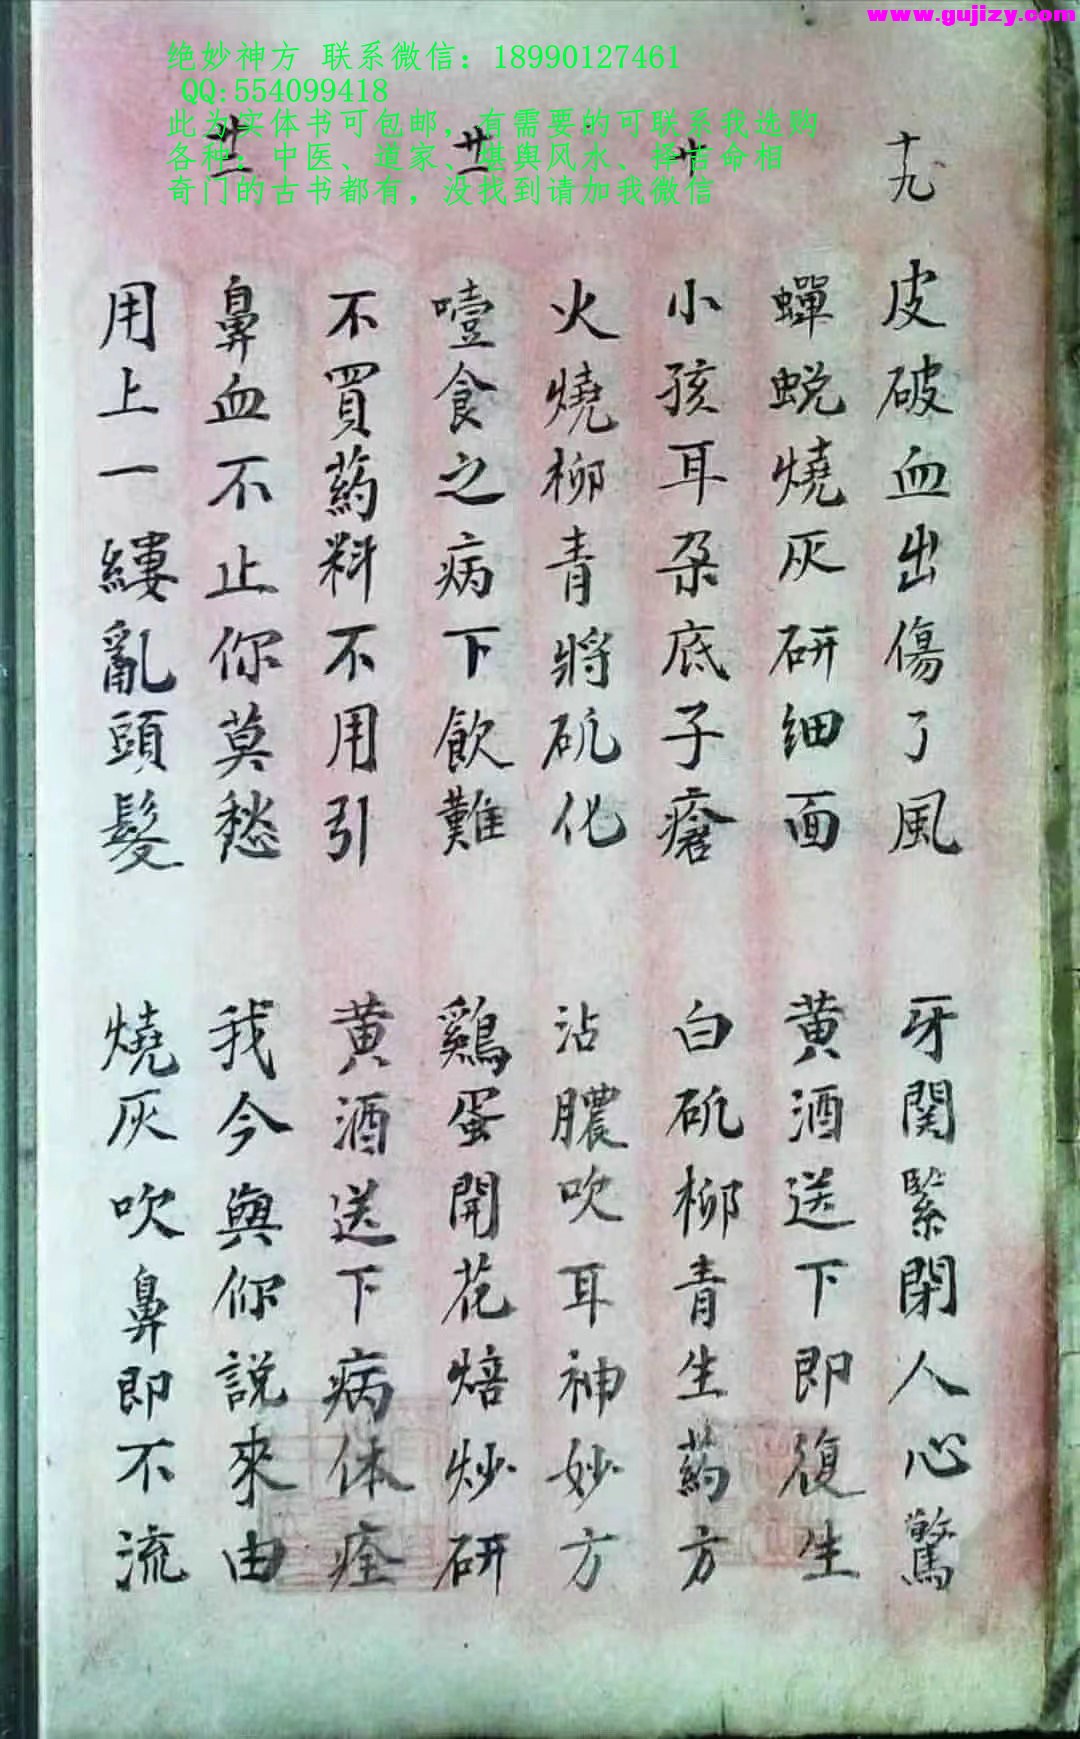 www.gujizy.com
绝妙神方 联系微信：18990127461
QQ:554099418
此为实体书可包邮，有需要的可联系我选购
各种：中医、道家、堪舆风水、择吉命相
奇门的古书都有，没找到请加我微信
十九
皮破血出傷了風 牙関緊閉人心驚
蟬蜕燒灰研细面 黄酒送下即復生
廿
小孩耳朶底子瘡 白矾柳青生药方
火燒柳青將矾化 沾膿吹耳神妙方
廿一
噎食之病下飲難 鷄蛋開花焙炒研
不買药料不用引 黄酒送下病体痊
廿二
鼻血不止你莫愁 我今與你説來由
用上一縷亂頭髮 燒灰吹鼻即不流